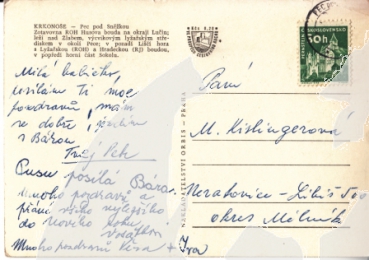 KRKONOŠE — Pec pod Sněžkou
Zotavovna ROH Husova bouda na okraji Lučin;
leží nad Zlatem, výcvikovým lyžařským stře-
diskem v okolí Pece; v pozadí Liščí hora
s Lyžařskou (ROH) a Hradeckou (RJ) boudou,
v popředí horní část Sokola.
Milá babičko,
posílám Ti moc
pozdravů, mám
se dobře,
s Bárou.
Tvůj Petr
Pusu posílá Bára.
Mnoho pozdravů a
přání všeho nejlepšího
do Nového roku
Mnoho pozdravů
Iva
NAKLADATELSTVÍ ORBIS - PRAHA
ČESKOSLOVENSKO
30h
Paní
M. Kislingerová
Neratovice - Libiš 500
okres Mělník